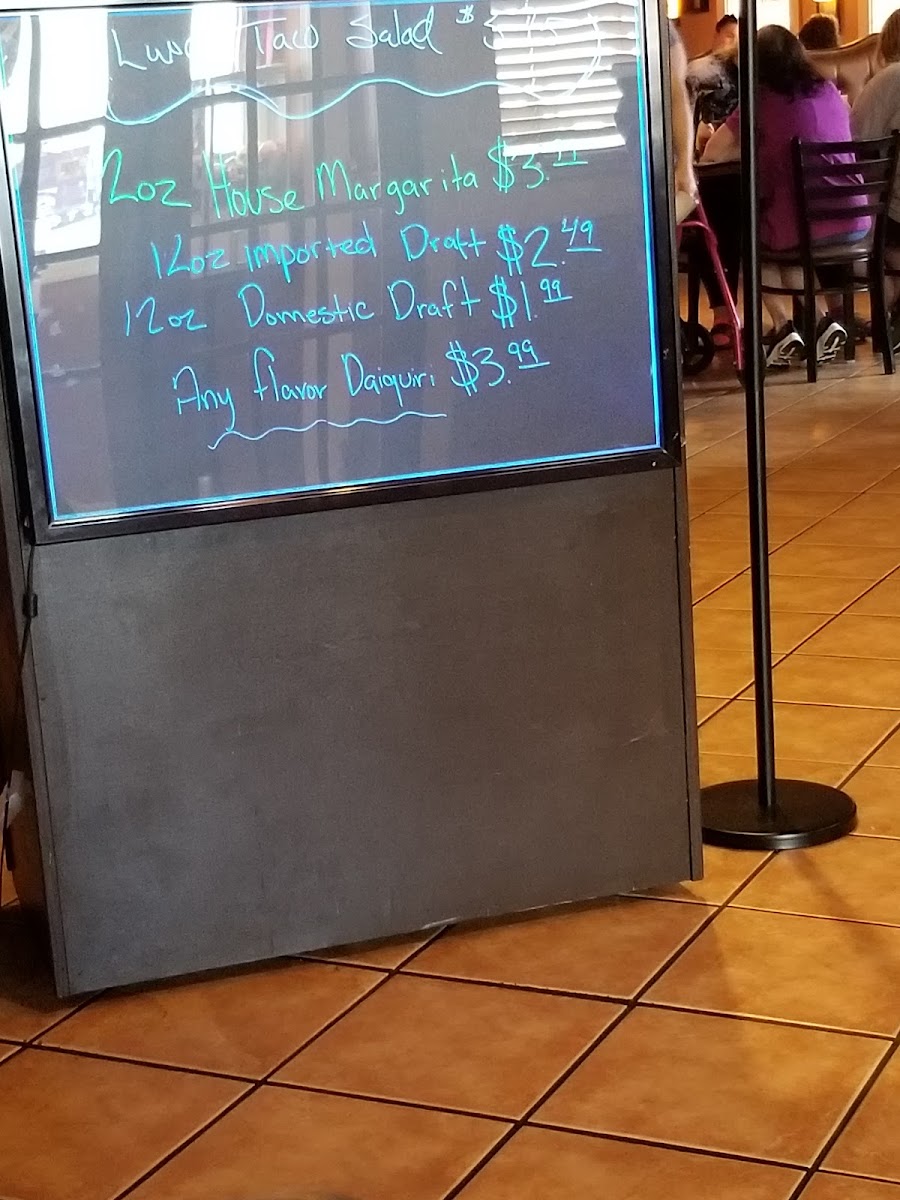 Taco Salad $
2oz House Margarita $3.
12oz imported Draft $2.49
12oz Domestic Draft $1.99
Any flavor Daiquiri $3.99